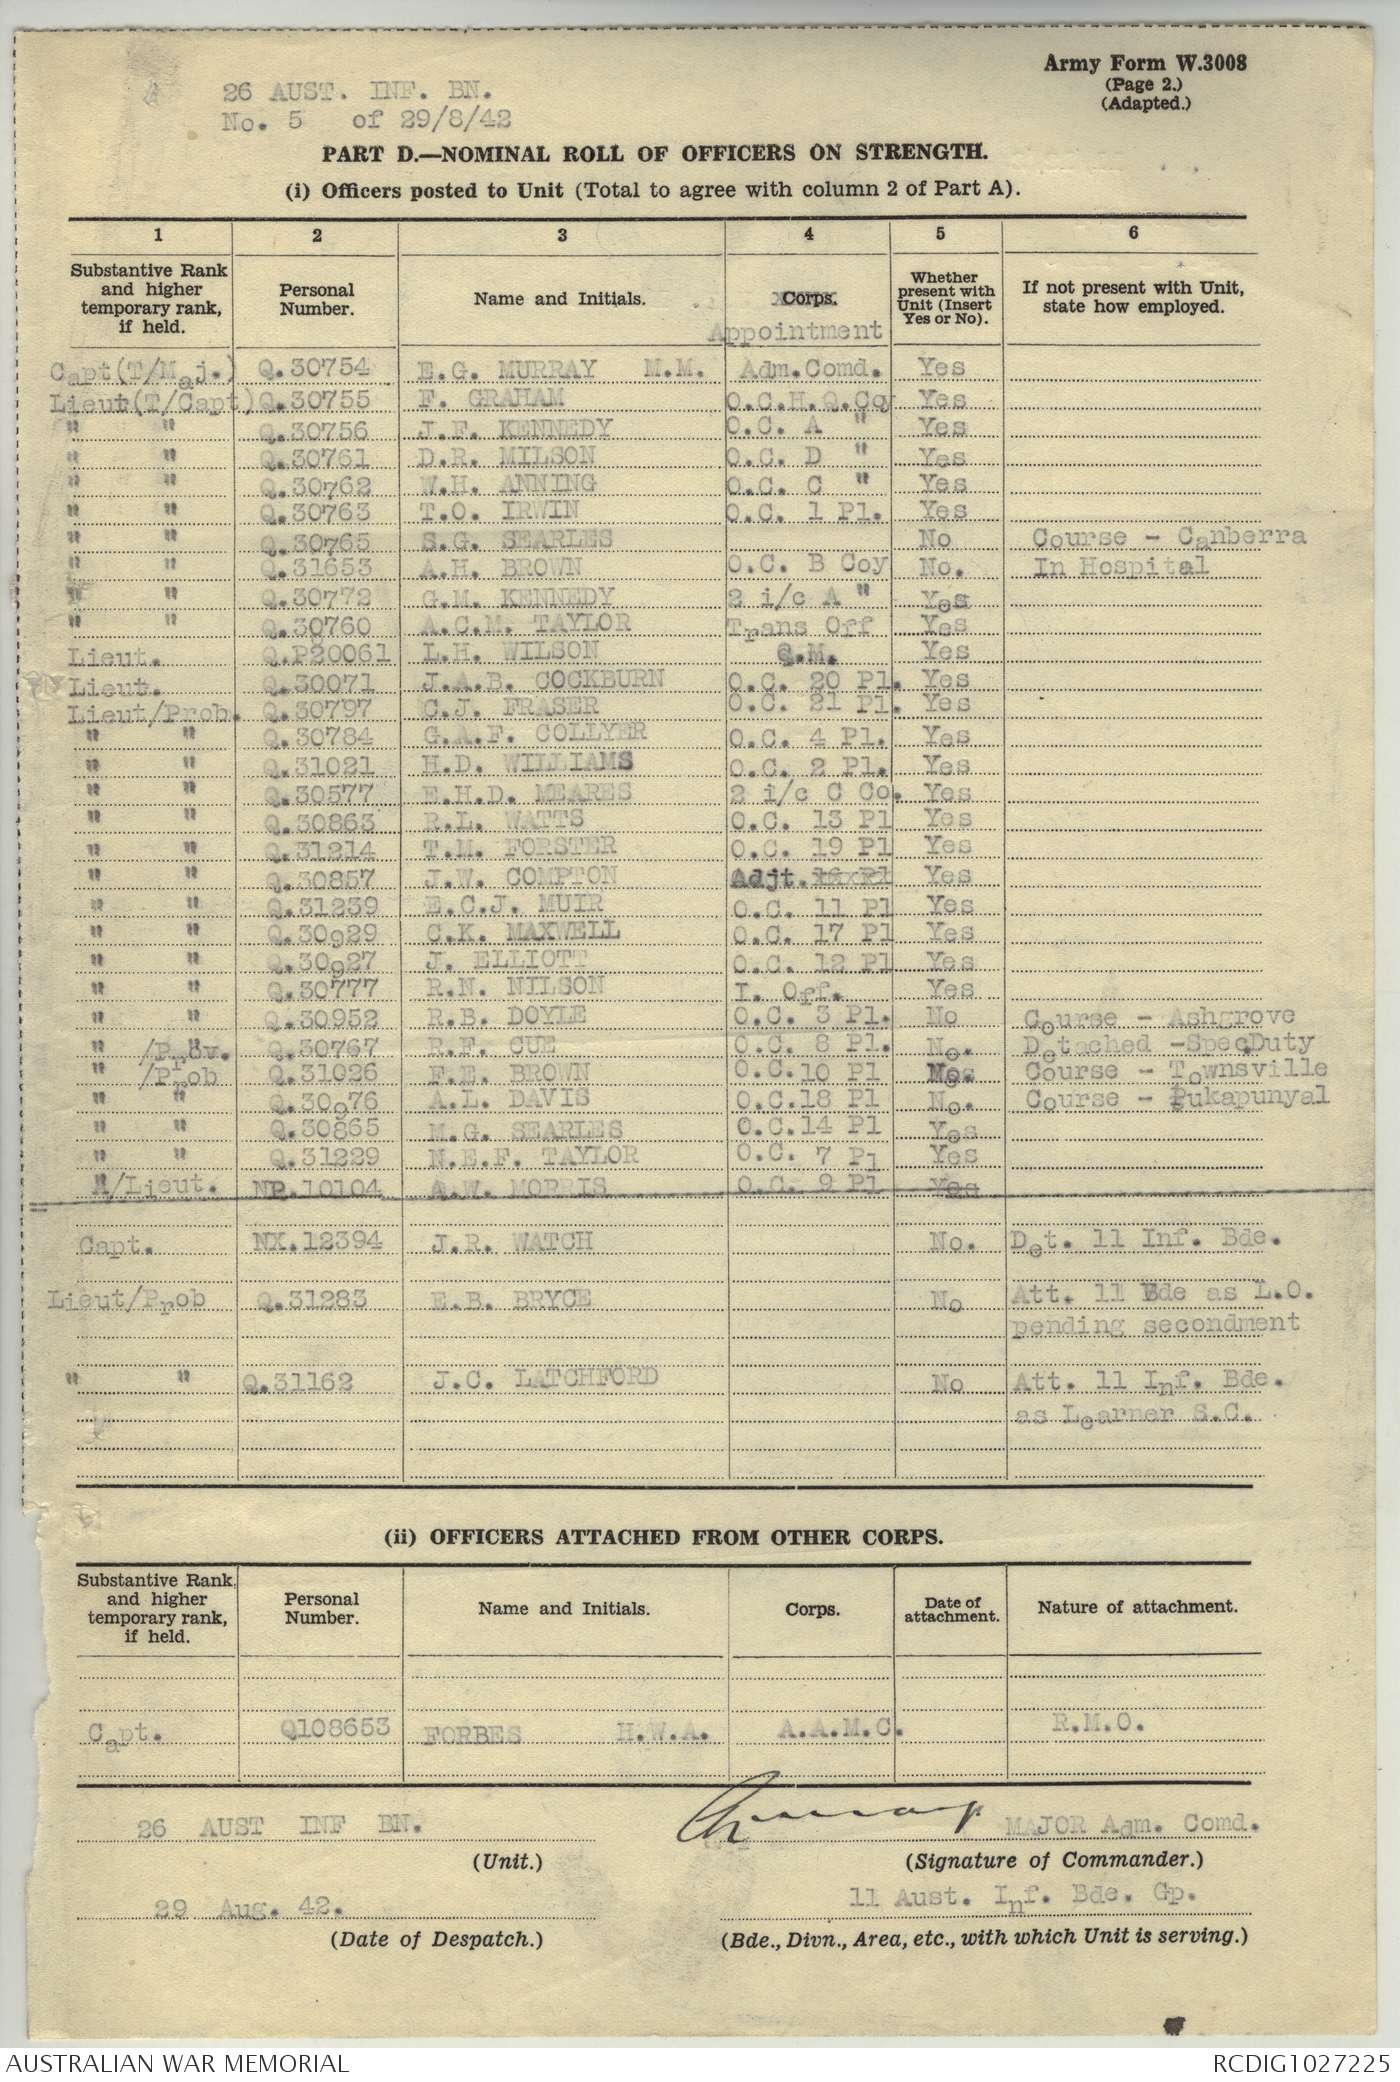 Army Form W.3008
(Page 2.)
(Adapted.)
26 AUST. INF. BN.
No. 5 of 29/8/42
PART D.—NOMINAL ROLL OF OFFICERS ON STRENGTH.
(i) Officers posted to Unit (Total to agree with column 2 of Part A).
1 2 3 4 5 6
Substantive Rank and higher temporary rank, if held. Personal Number. Name and Initials. Corps. Appointment Whether present with Unit (Insert Yes or No). If not present with Unit, state how employed.
Capt(T/Maj.) Q.30754 E.G. MURRAY M.M. Adm.Comd. Yes
Lieut(T/Capt) Q.30755 F. GRAHAM O.C.H.Q.Coy Yes
" " Q.30756 J.F. KENNEDY O.C. A " Yes
" " Q.30761 D.R. MILSON O.C. D " Yes
" " Q.30762 W.H. ANNING O.C. C " Yes
" " Q.30763 T.O. IRWIN O.C. 1 Pl. Yes
" " Q.30765 S.G. SEARLES No Course - Canberra
" " Q.31653 A.H. BROWN O.C. B Coy No. In Hospital
" " Q.30772 G.M. KENNEDY 2 i/c A " Yes
" " Q.30760 A.C.M. TAYLOR Trans Off Yes
Lieut. Q.P20061 L.H. WILSON Q.M. Yes
Lieut. Q.30071 J.A.B. COCKBURN O.C. 20 Pl. Yes
Lieut/Prob. Q.30797 C.J. FRASER O.C. 21 Pl. Yes
" " Q.30784 G.A.F. COLLYER O.C. 4 Pl. Yes
" " Q.31021 H.D. WILLIAMS O.C. 2 Pl. Yes
" " Q.30577 E.H.D. MEARES 2 i/c C Co. Yes
" " Q.30863 R.L. WATTS O.C. 13 Pl Yes
" " Q.31214 T.M. FORSTER O.C. 19 Pl Yes
" " Q.30857 J.W. COMPTON Adjt. Yes
" " Q.31239 E.C.J. MUIR O.C. 11 Pl Yes
" " Q.30929 C.K. MAXWELL O.C. 17 Pl Yes
" " Q.30927 J. ELLIOTT O.C. 12 Pl Yes
" " Q.30777 R.N. NILSON I. Off. Yes
" " Q.30952 R.B. DOYLE O.C. 3 Pl. No Course - Ashgrove
" "/Prov. Q.30767 R.F. CUE O.C. 8 Pl. No. Detached -SpecDuty
" /Prob Q.31026 F.E. BROWN O.C.10 Pl No. Course - Townsville
" " Q.30976 A.L. DAVIS O.C.18 Pl No. Course - Pukapunyal
" " Q.30865 M.G. SEARLES O.C.14 Pl Yes
" " Q.31229 N.E.F. TAYLOR O.C. 7 Pl Yes
A/Lieut. NP.10104 A.W. MORRIS O.C. 9 Pl Yes
Capt. NX.12394 J.R. WATCH No. Det. 11 Inf. Bde.
Lieut/Prob Q.31283 E.B. BRYCE No Att. 11 Bde as L.O.
pending secondment
" " Q.31162 J.C. LATCHFORD No Att. 11 Inf. Bde.
as Learner S.C.
(ii) OFFICERS ATTACHED FROM OTHER CORPS.
Substantive Rank and higher temporary rank, if held. Personal Number. Name and Initials. Corps. Date of attachment. Nature of attachment.
Capt. Q108653 FORBES H.W.A. A.A.M.C. R.M.O.
26 AUST INF BN. MAJOR Adm. Comd.
(Unit.) (Signature of Commander.)
29 Aug. 42. 11 Aust. Inf. Bde. Gp.
(Date of Despatch.) (Bde., Divn., Area, etc., with which Unit is serving.)
AUSTRALIAN WAR MEMORIAL RCDIG1027225